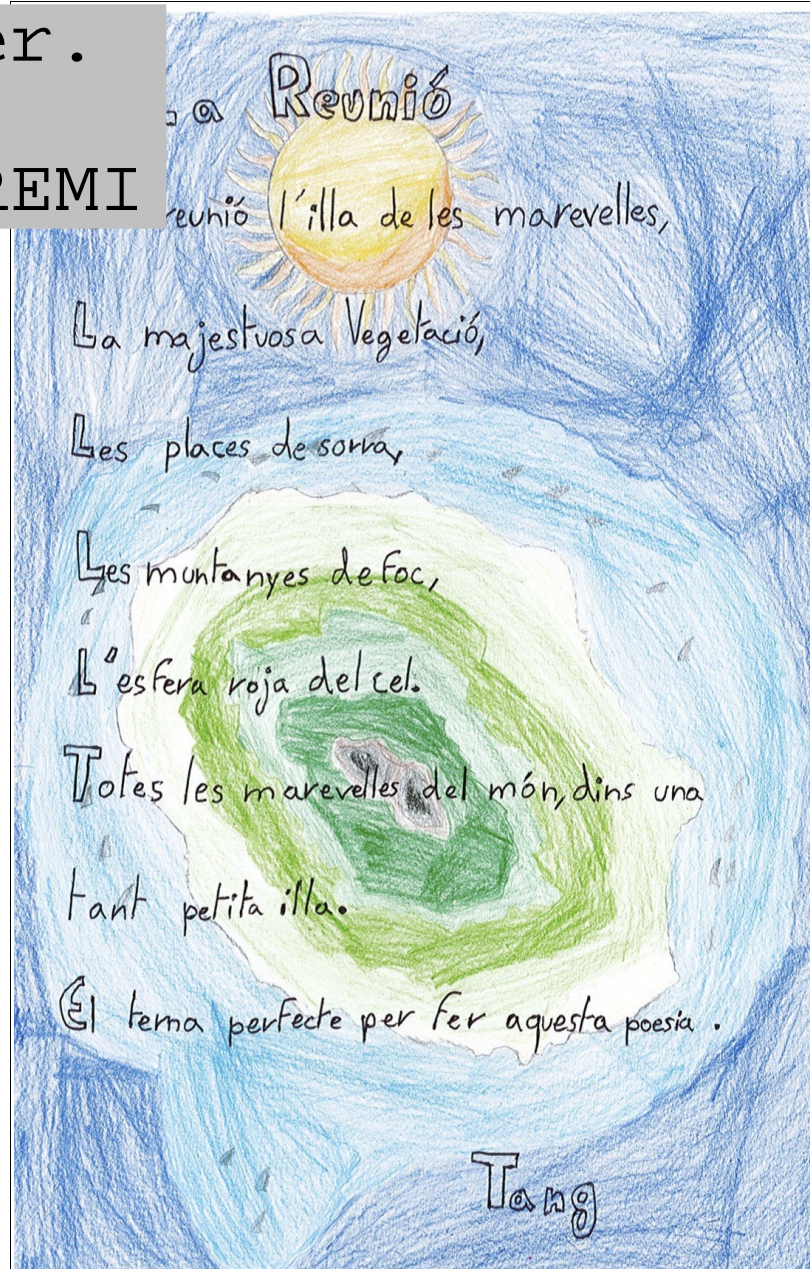 er.
REMI
La Reunió
reunió l'illa de les marevelles,
La majestuosa Vegetació,
Les places de sorra,
Les muntanyes de Foc,
L'esfera roja del cel.
Totes les marevelles del món, dins una
tant petita illa.
El tema perfecte per fer aquesta poesia.
Tang